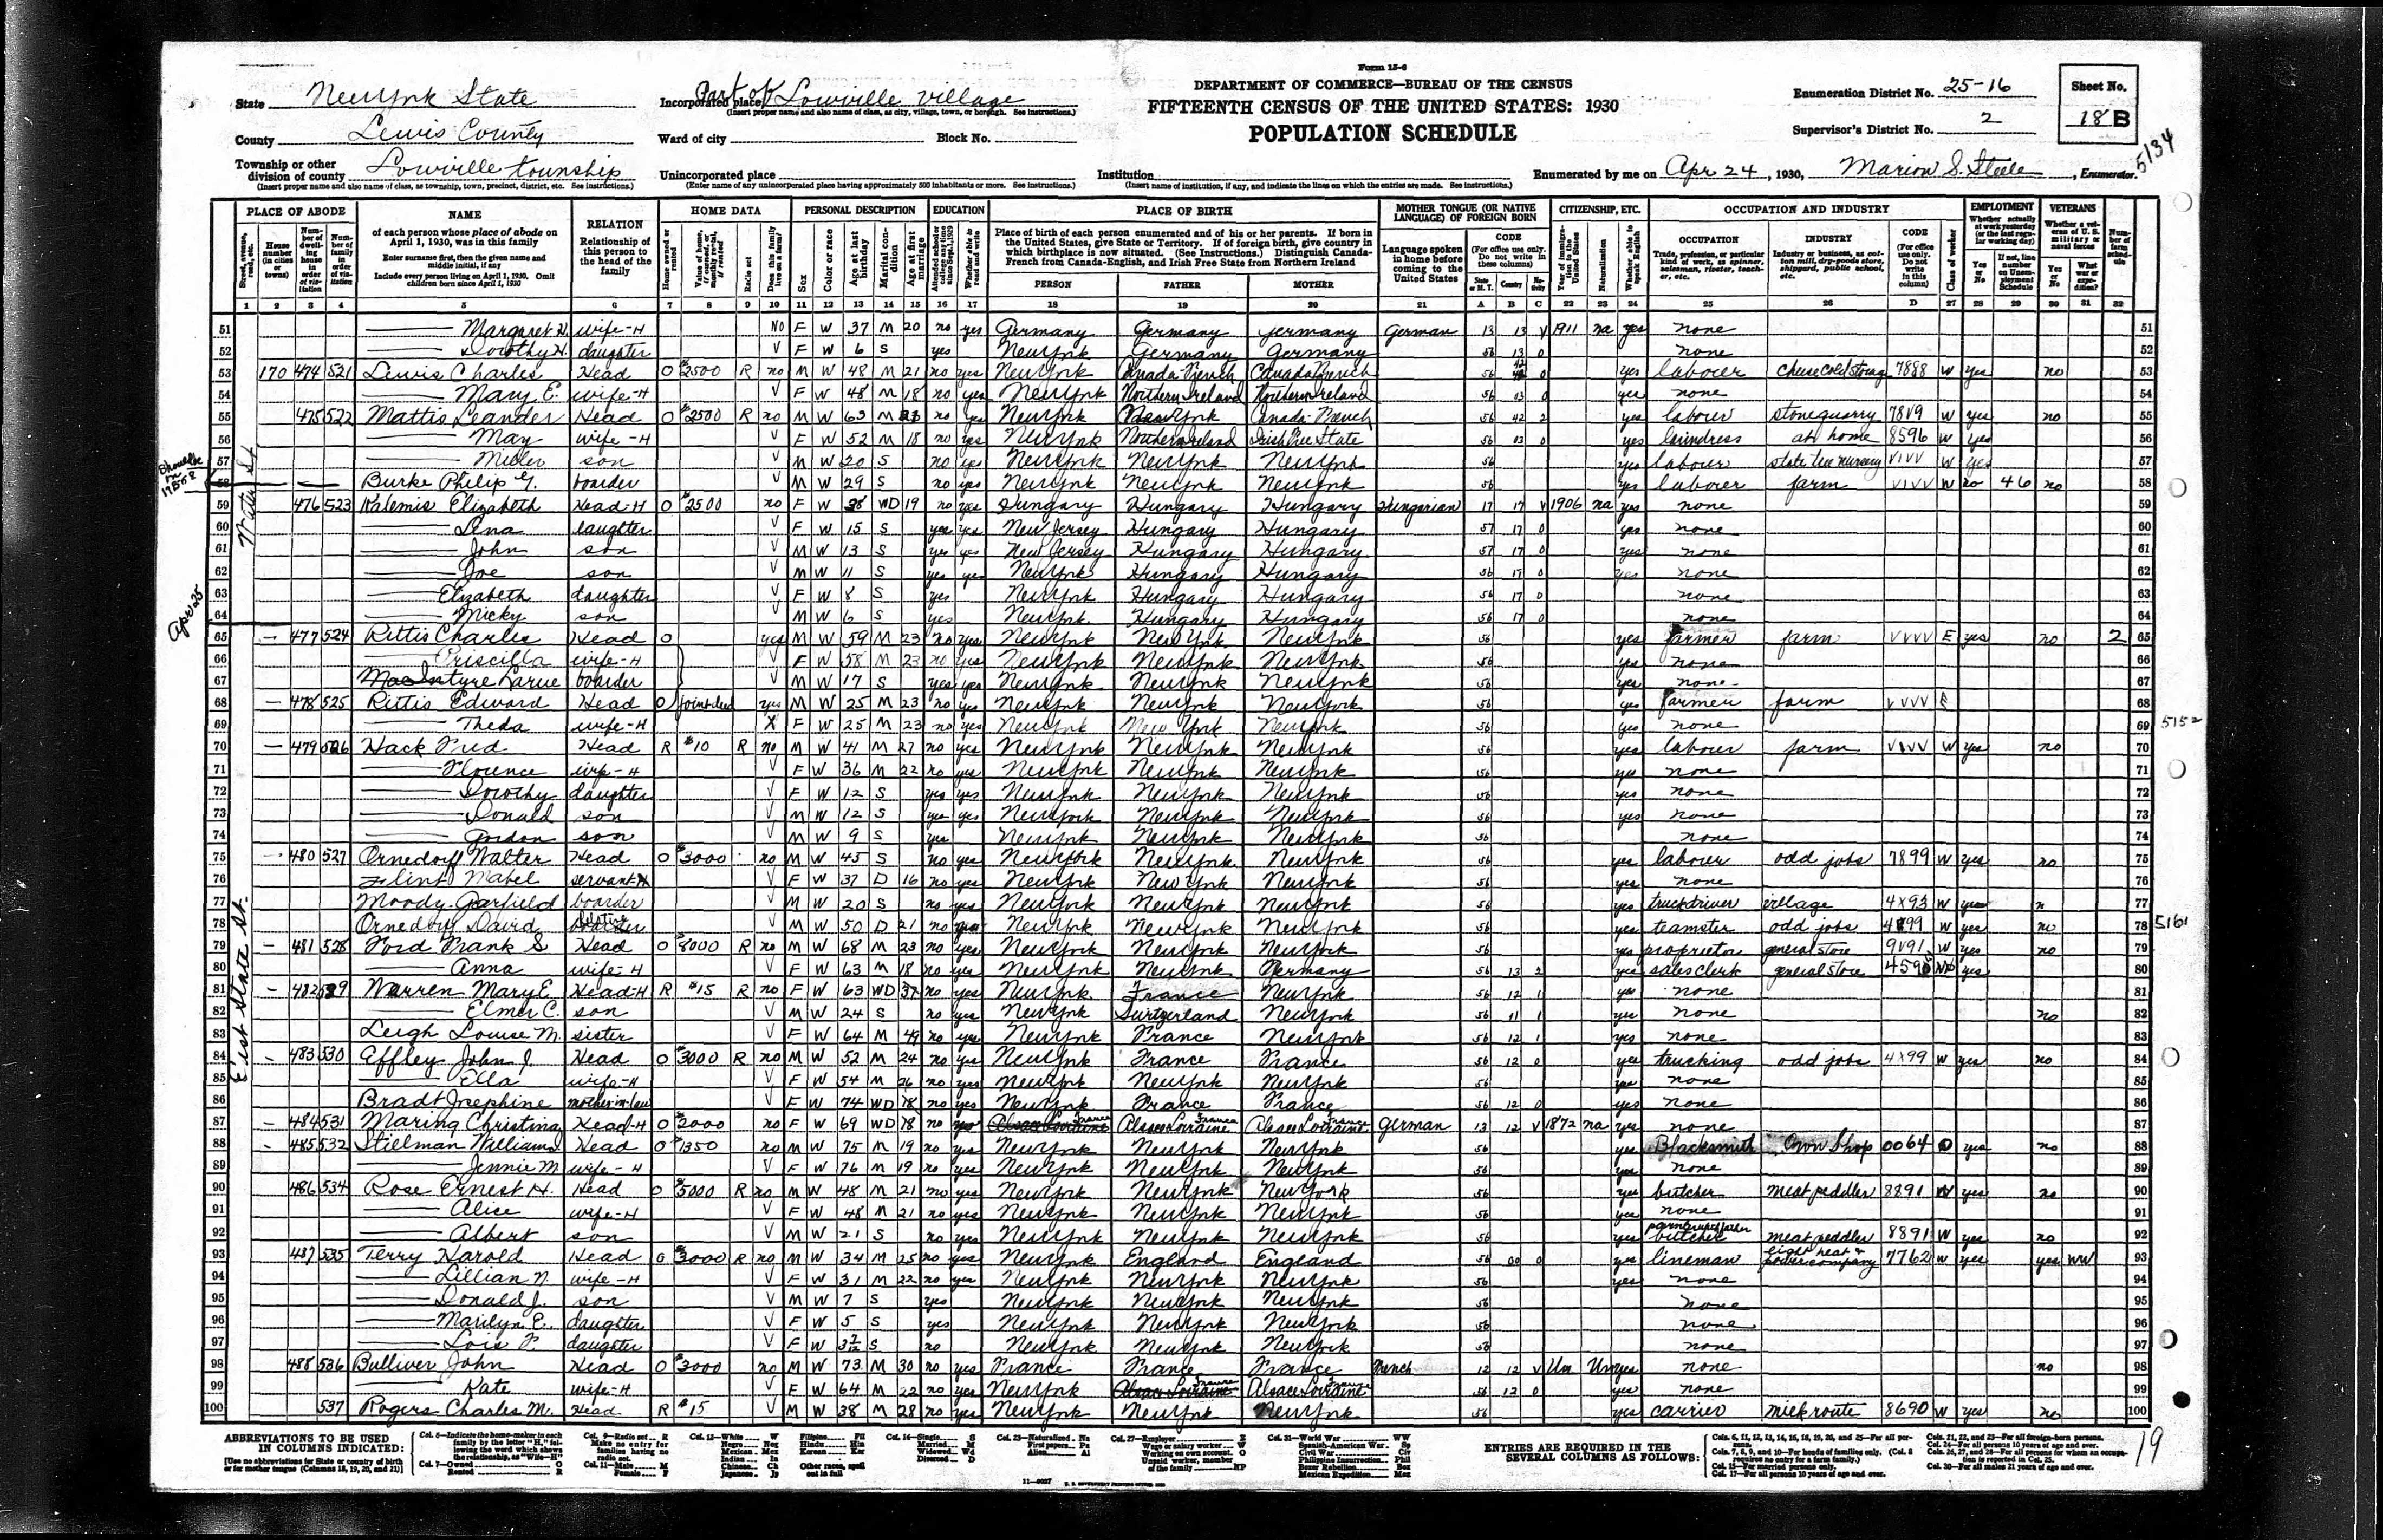 Form 15-6
State New York State
Incorporated place Part of Lowville Village
(Insert proper name and also name of class, as city, village, town, or borough. See instructions.)
DEPARTMENT OF COMMERCE—BUREAU OF THE CENSUS
FIFTEENTH CENSUS OF THE UNITED STATES: 1930
POPULATION SCHEDULE
Enumeration District No. 25-16
Supervisor's District No. 2
Sheet No.
18 B
5134
County Lewis County
Ward of city
Block No.
Township or other division of county Lowville township
(Insert proper name and also name of class, as township, town, precinct, district, etc. See instructions.)
Unincorporated place
(Enter name of any unincorporated place having approximately 500 inhabitants or more. See instructions.)
Institution
(Insert name of institution, if any, and indicate the lines on which the entries are made. See instructions.)
Enumerated by me on Apr 24, 1930, Marion S. Steele, Enumerator.
PLACE OF ABODE NAME RELATION HOME DATA PERSONAL DESCRIPTION EDUCATION PLACE OF BIRTH MOTHER TONGUE (OR NATIVE LANGUAGE) OF FOREIGN BORN CITIZENSHIP, ETC. OCCUPATION AND INDUSTRY EMPLOYMENT VETERANS
of each person whose place of abode on April 1, 1930, was in this family
Enter surname first, then the given name and middle initial, if any
Include every person living on April 1, 1930. Omit children born since April 1, 1930
Relationship of this person to the head of the family
Place of birth of each person enumerated and of his or her parents. If born in the United States, give State or Territory. If of foreign birth, give country in which birthplace is now situated. (See Instructions.) Distinguish Canada-French from Canada-English, and Irish Free State from Northern Ireland
PERSON FATHER MOTHER
Language spoken in home before coming to the United States
OCCUPATION INDUSTRY CODE
1 2 3 4 5 6 7 8 9 10 11 12 13 14 15 16 17 18 19 20 21 A B C 22 23 24 25 26 D 27 28 29 30 31 32
51 Margaret H. wife-H No F W 37 M 20 no yes Germany Germany Germany German 13 13 V 1911 na yes none 51
52 Dorothy H. daughter V F W 6 S yes New York Germany Germany 56 13 0 none 52
53 170 474 521 Lewis Charles Head O $2500 R no M W 48 M 21 no yes New York Canada French Canada French 56 42 0 yes labourer cheese cold storage 7888 W yes no 53
54 Mary E. wife-H V F W 48 M 18 no yes New York Northern Ireland Northern Ireland 56 03 0 yes none 54
55 475 522 Mattis Leander Head O $2500 R no M W 63 M no yes New York New York Canada French 56 42 2 yes labourer stone quarry 7819 W yes no 55
56 May wife-H V F W 52 M 18 no yes New York Northern Ireland Irish Free State 56 03 0 yes laundress at home 8596 W yes 56
57 Miller son V M W 20 S no yes New York New York New York 56 yes labourer state tree nursery VIVV W yes 57
58 Burke Philip G. boarder V M W 29 S no yes New York New York New York 56 yes labourer farm VIVV W no 46 no 58
59 476 523 Kalemis Elizabeth Head-H O $2500 no F W 38 WD 19 no yes Hungary Hungary Hungary Hungarian 17 17 V 1906 na yes none 59
60 Lena daughter V F W 15 S yes yes New Jersey Hungary Hungary 57 17 0 yes none 60
61 John son V M W 13 S yes yes New Jersey Hungary Hungary 57 17 0 yes none 61
62 Joe son V M W 11 S yes yes New York Hungary Hungary 56 17 0 yes none 62
63 Elizabeth daughter V F W 8 S yes New York Hungary Hungary 56 17 0 none 63
64 Micky son M W 6 S yes New York Hungary Hungary 56 17 0 none 64
65 477 524 Rittis Charles Head O yes M W 59 M 23 no yes New York New York New York 56 yes farmer farm VVVV E yes no 2 65
66 Priscilla wife-H V F W 58 M 23 no yes New York New York New York 56 yes none 66
67 MacIntyre Larue boarder V M W 17 S yes yes New York New York New York 56 yes none 67
68 478 525 Rittis Edward Head O joint deed yes M W 25 M 23 no yes New York New York New York 56 yes farmer farm VVVV E 68
69 Theda wife-H X F W 25 M 23 no yes New York New York New York 56 yes none 69 5152
70 479 526 Hack Fred Head R $10 R no M W 41 M 27 no yes New York New York New York 56 yes labour farm VIVV W yes no 70
71 Florence wife-H V F W 36 M 22 no yes New York New York New York 56 yes none 71
72 Dorothy daughter V F W 12 S yes yes New York New York New York 56 yes none 72
73 Donald son V M W 12 S yes yes New York New York New York 56 yes none 73
74 Gordon son V M W 9 S yes New York New York New York 56 none 74
75 480 527 Ornedorff Walter Head O $3000 no M W 45 S no yes New York New York New York 56 yes labour odd jobs 7899 W yes no 75
76 Flint Mabel servant-H V F W 37 D 16 no yes New York New York New York 56 yes none 76
77 Moody Garfield boarder V M W 20 S no yes New York New York New York 56 yes truckdriver village 4X93 W yes n 77
78 Ornedorff David V M W 50 D 21 no yes New York New York New York 56 yes teamster odd jobs 4899 W yes no 78 5161
79 481 528 Ford Frank S Head O $8000 R no M W 68 M 23 no yes New York New York New York 56 yes proprietor general store 9V91 W yes no 79
80 Anna wife-H V F W 63 M 18 no yes New York New York Germany 56 13 2 yes sales clerk general store 4590 yes 80
81 482 529 Warren Mary E Head-H R $15 R no F W 63 WD 37 no yes New York France New York 56 12 1 yes none 81
82 Elmer C. son V M W 24 S no yes New York Switzerland New York 56 11 1 yes none no 82
83 Leigh Louise M. sister V F W 64 M 49 no yes New York France New York 56 12 1 yes none 83
84 483 530 Effley John J. Head O $3000 R no M W 52 M 24 no yes New York France France 56 12 0 yes trucking odd jobs 4X99 W yes no 84
85 Ella wife-H V F W 54 M 26 no yes New York New York New York 56 yes none 85
86 Bradt Josephine mother-in-law V F W 74 WD 18 no yes New York France France 56 12 0 yes none 86
87 484 531 Maring Christina Head-H O $2000 no F W 69 WD 18 no yes Alsace Lorraine France Alsace Lorraine France Alsace Lorraine France German 13 12 V 1872 na yes none 87
88 485 532 Stielman William Head O $1350 no M W 75 M 19 no yes New York New York New York 56 yes Blacksmith Own Shop 0064 O yes no 88
89 Jennie M wife-H V F W 76 M 19 no yes New York New York New York 56 yes none 89
90 486 534 Rose Ernest H. Head O $5000 R no M W 48 M 21 no yes New York New York New York 56 yes butcher meat peddler 8891 W yes no 90
91 Alice wife-H V F W 48 M 21 no yes New York New York New York 56 yes none 91
92 Albert son V M W 21 S no yes New York New York New York 56 yes butcher meat peddler 8891 W yes no 92
93 487 535 Terry Harold Head O $3000 R no M W 34 M 25 no yes New York England England 56 00 0 yes lineman light heat & power company 7762 W yes yes WW 93
94 Lillian N. wife-H V F W 31 M 22 no yes New York New York New York 56 yes none 94
95 Donald J. son V M W 7 S yes New York New York New York 56 none 95
96 Marilyn E. daughter V F W 5 S yes New York New York New York 56 none 96
97 Lois P. daughter V F W 3 7/12 S no New York New York New York 56 none 97
98 488 536 Bulliver John Head O $3000 no M W 73 M 30 no yes France France France French 12 12 V Un Un yes none no 98
99 Kate wife-H V F W 64 M 22 no yes New York Alsace Lorraine France Alsace Lorraine France 56 12 0 yes none 99
100 537 Rogers Charles M. Head R $15 V M W 38 M 28 no yes New York New York New York 56 yes carrier milk route 8690 W yes no 100
East State St.
Apr 25
ABBREVIATIONS TO BE USED IN COLUMNS INDICATED:
[Use no abbreviations for State or country of birth or for mother tongue (Columns 18, 19, 20, and 21)]
ENTRIES ARE REQUIRED IN THE SEVERAL COLUMNS AS FOLLOWS:
19